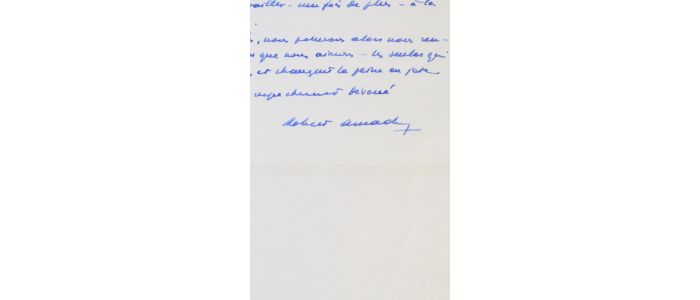 vailler - une fois de plus - à la
, nous pourrons alors nous ren-
que nous aimons - les seules qui
, et changent la peine en joie.
respectueusement dévoué
Robert Amadou